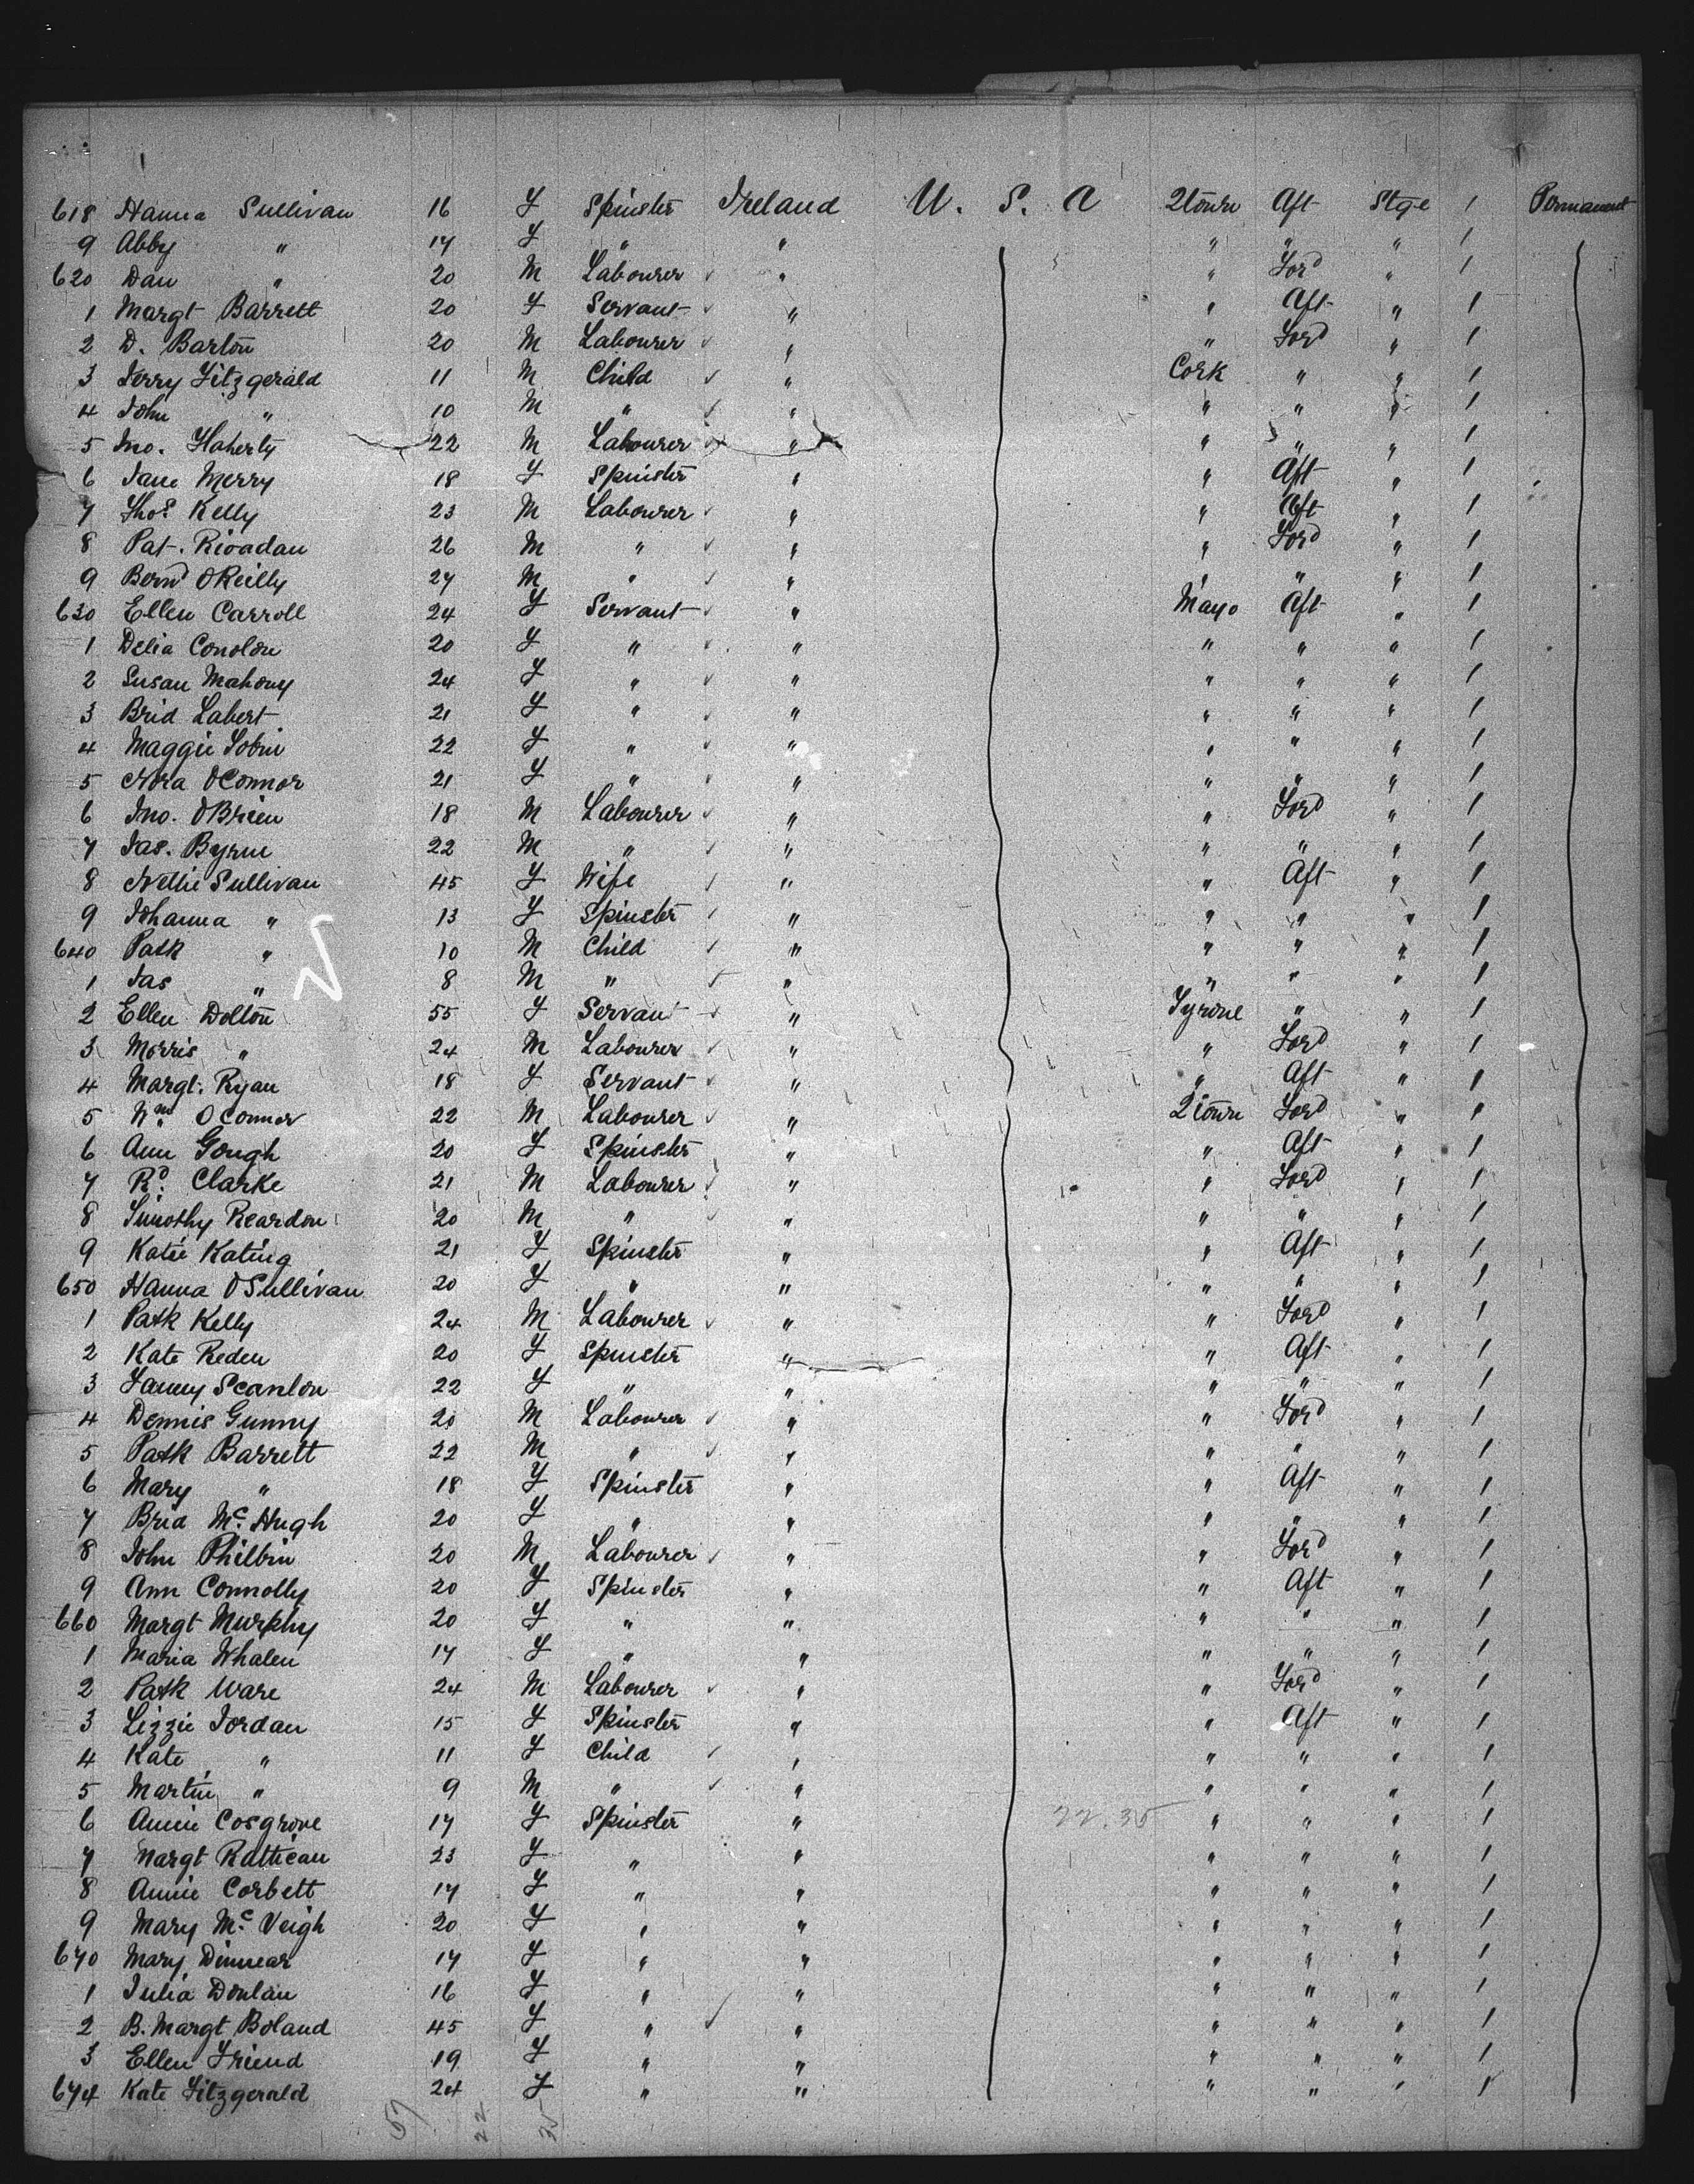 618 Hanna Sullivan 16 F Spinster Ireland U. S. A Qtown Aft Stge 1 Permanent
9 Abby " 17 F " " " " " 1
620 Dan " 20 M Labourer " " Ford " 1
1 Margt Barrett 20 F Servant " " Aft " 1
2 D. Barton 20 M Labourer " " Ford " 1
3 Jerry Fitzgerald 11 M Child " Cork " " 1
4 John " 10 M " " " " " 1
5 Jno. Flaherty 22 M Labourer " " " " 1
6 Jane Merry 18 F Spinster " " Aft " 1
7 Thos. Kelly 23 M Labourer " " Aft " 1
8 Pat. Rioadan 26 M " " " Ford " 1
9 Bernd OReilly 27 M " " " " " 1
630 Ellen Carroll 24 F Servant " Mayo Aft " 1
1 Delia Conolon 20 F " " " " " 1
2 Susan Mahony 24 F " " " " " 1
3 Brid Labert 21 F " " " " " 1
4 Maggie Tobin 22 F " " " " " 1
5 Nora OConnor 21 F " " " " " 1
6 Jno. OBrien 18 M Labourer " " Ford " 1
7 Jas. Byrne 22 M " " " " " 1
8 Nellie Sullivan 45 F Wife " " Aft " 1
9 Johanna " 13 F Spinster " " " " 1
640 Patk " 10 M Child " " " " 1
1 Jas " 8 M " " " " " 1
2 Ellen Dolton 55 F Servant " Tyrone " " 1
3 Morris " 24 M Labourer " " Ford " 1
4 Margt. Ryan 18 F Servant " " Aft " 1
5 Wm. OConnor 22 M Labourer " Qtown Ford " 1
6 Ann Gough 20 F Spinster " " Aft " 1
7 Rd. Clarke 21 M Labourer " " Ford " 1
8 Timothy Reardon 20 M " " " " " 1
9 Katie Kating 21 F Spinster " " Aft " 1
650 Hanna OSullivan 20 F " " " " " 1
1 Patk Kelly 24 M Labourer " " Ford " 1
2 Kate Reden 20 F Spinster " " Aft " 1
3 Fanny Scanlon 22 F " " " " " 1
4 Dennis Gunny 20 M Labourer " " Ford " 1
5 Patk Barrett 22 M " " " " " 1
6 Mary " 18 F Spinster " " Aft " 1
7 Brid Mc. Hugh 20 F " " " " " 1
8 John Philbin 20 M Labourer " " Ford " 1
9 Ann Connolly 20 F Spinster " " Aft " 1
660 Margt Murphy 20 F " " " " " 1
1 Maria Whalen 17 F " " " " " 1
2 Patk Ware 24 M Labourer " " Ford " 1
3 Lizzie Jordan 15 F Spinster " " Aft " 1
4 Kate " 11 F Child " " " " 1
5 Martin " 9 M " " " " " 1
6 Annie Cosgrove 17 F Spinster " 22.35 " " " 1
7 Margt Rattican 23 F " " " " " 1
8 Annie Corbett 17 F " " " " " 1
9 Mary Mc. Veigh 20 F " " " " " 1
670 Mary Dinnear 17 F " " " " " 1
1 Julia Donlan 16 F " " " " " 1
2 B. Margt Boland 45 F " " " " " 1
3 Ellen Friend 19 F " " " " " 1
674 Kate Fitzgerald 24 F " " " " " 1
57 22 35